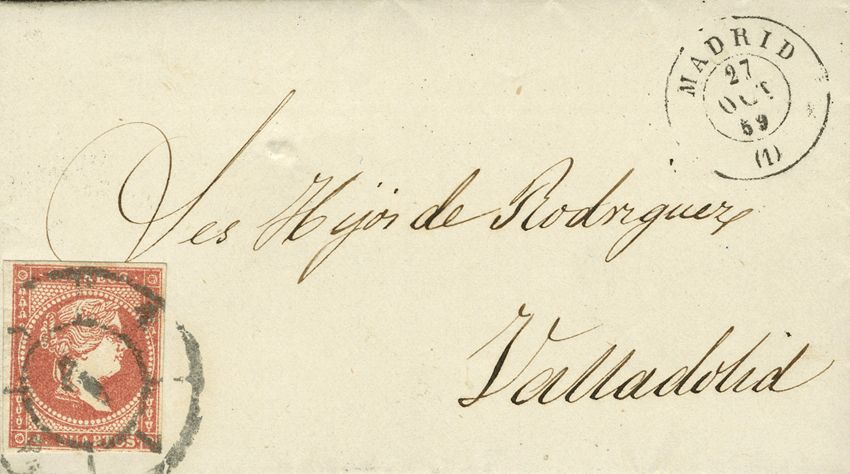 MADRID
27
OCT
59
(1)
Ses Hijos de Rodriguez
Valladolid
CUARTOS